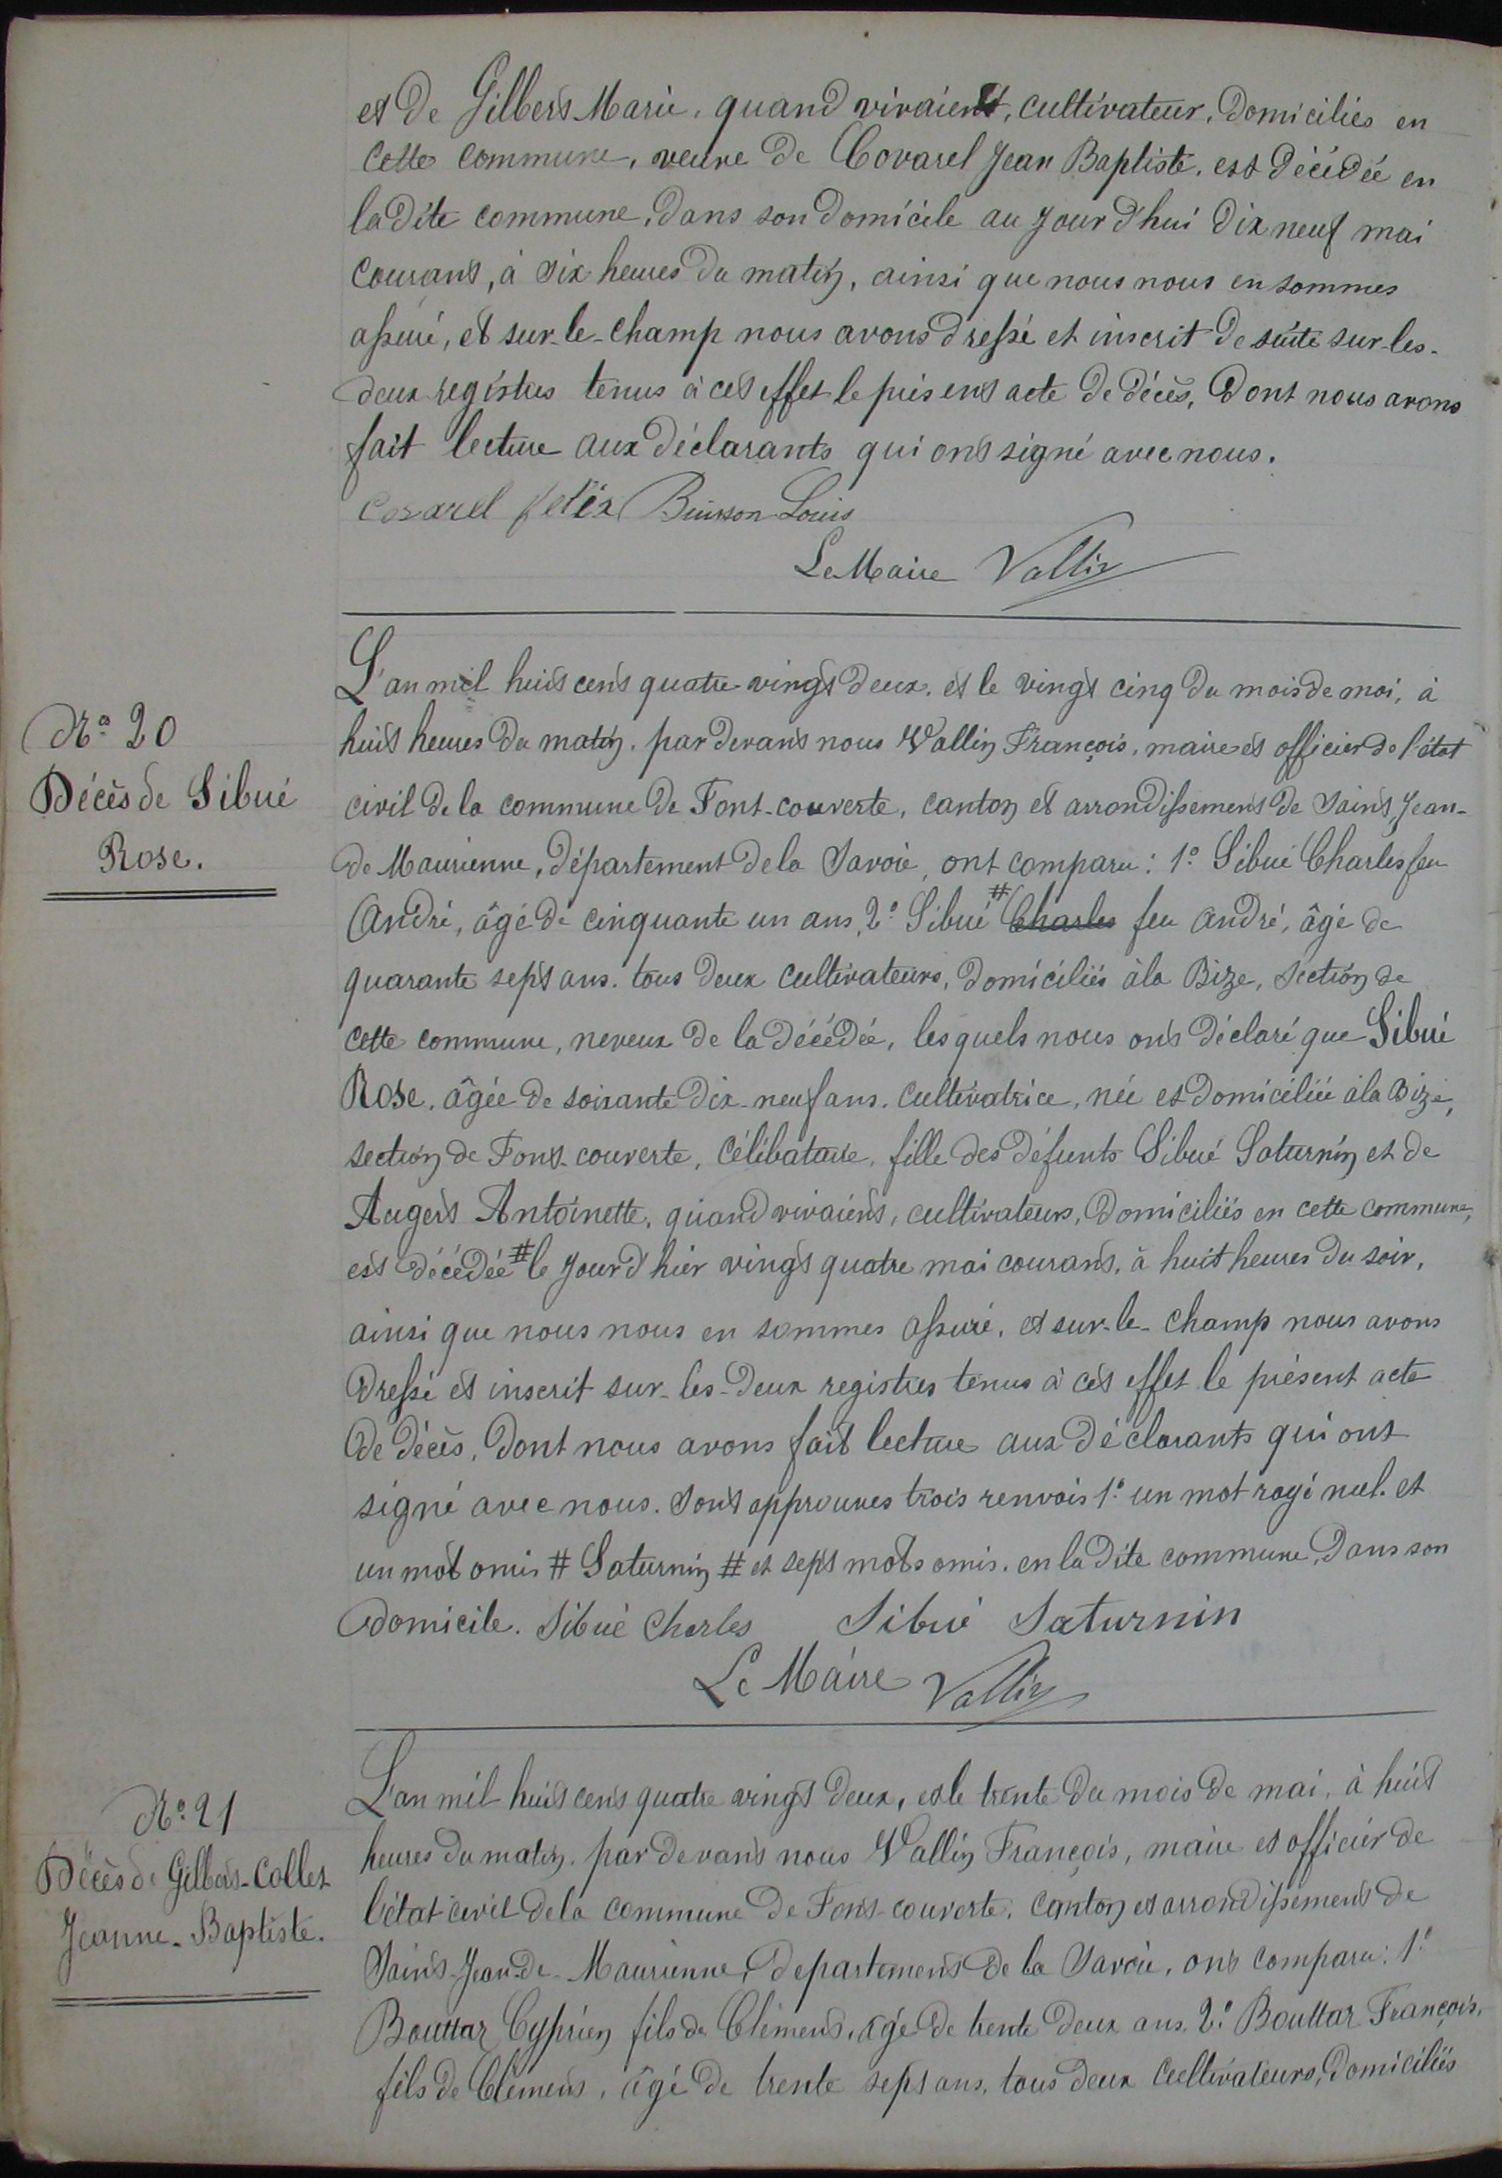 et de Gilbert Marie, quand vivaient, cultivateur, domiciliés en
cette commune, veuve de Covarel Jean Baptiste, est décédée en
ladite commune, dans son domicile au jour d'hui dix neuf mai
courant, à six heures du matin, ainsi que nous nous en sommes
assuré, et sur-le-champ nous avons dressé et inscrit de suite sur-les-
deux registres tenus à cet effet le présent acte de décès, dont nous avons
fait lecture aux déclarants qui ont signé avec nous.
Covarel felix Buisson Louis
Le Maire Vallin
N° 20
Décès de Sibué
Rose.
L'an mil huit cent quatre vingt deux, et le vingt cinq du mois de mai, à
huit heures du matin, par devant nous Vallin François, maire et officier de l'état
civil de la commune de Font-couverte, canton et arrondissement de Saint Jean-
de Maurienne, département de la Savoie, ont comparu : 1° Sibué Charles feu
André, âgé de cinquante un ans, 2° Sibué # Charles feu André, âgé de
quarante sept ans, tous deux cultivateurs, domiciliés à la Bize, section de
cette commune, neveux de la décédée, lesquels nous ont déclaré que Sibué
Rose, âgée de soixante dix-neuf ans, cultivatrice, née et domiciliée à la Bize,
section de Font-couverte, célibataire, fille des défunts Sibué Saturnin et de
Augert Antoinette, quand vivaient, cultivateurs, domiciliés en cette commune,
est décédée # le jour d'hier vingt quatre mai courant, à huit heures du soir,
ainsi que nous nous en sommes assuré, et sur-le-champ nous avons
dressé et inscrit sur-les-deux registres tenus à cet effet le présent acte
de décès, dont nous avons fait lecture aux déclarants qui ont
signé avec nous. Sont approuvés trois renvois 1° un mot rayé nul. et
un mot omis # Saturnin # et sept mots omis. en la dite commune, dans son
domicile. Sibué Charles Sibué Saturnin
Le Maire Vallin
N° 21
Décès de Gilbert-Collet
Jeanne-Baptiste.
L'an mil huit cent quatre vingt deux, et le trente du mois de mai, à huit
heures du matin, par devant nous Vallin François, maire et officier de
l'état civil de la commune de Font-couverte, canton et arrondissement de
Saint-Jean-de-Maurienne, departement de la Savoie, ont comparu : 1°
Bouttaz Cyprien fils de Clément, âgé de trente deux ans, 2° Bouttaz François,
fils de Clément, âgé de trente sept ans, tous deux cultivateurs, domiciliés